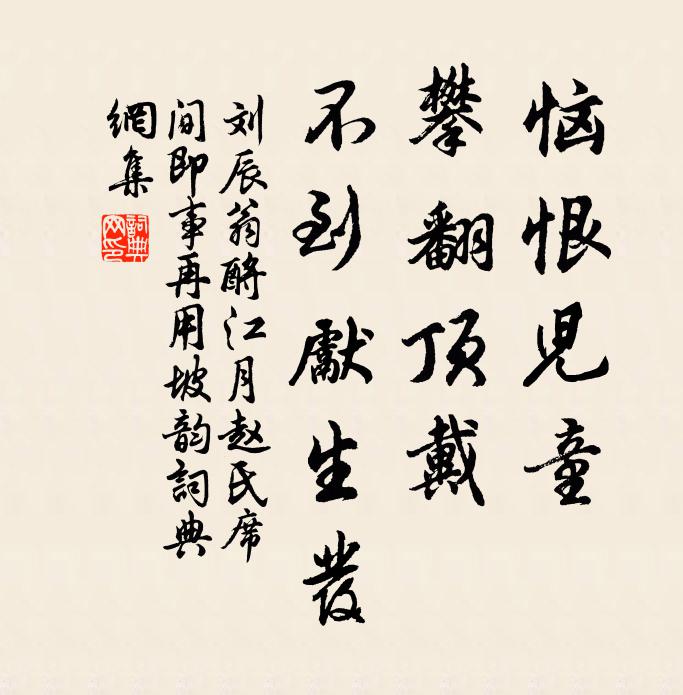 恼恨児童
攀翻顶戴
不到獻生發
刘辰翁酹江月赵氏席
间即事再用坡韵詞典
網集
詞典
网印